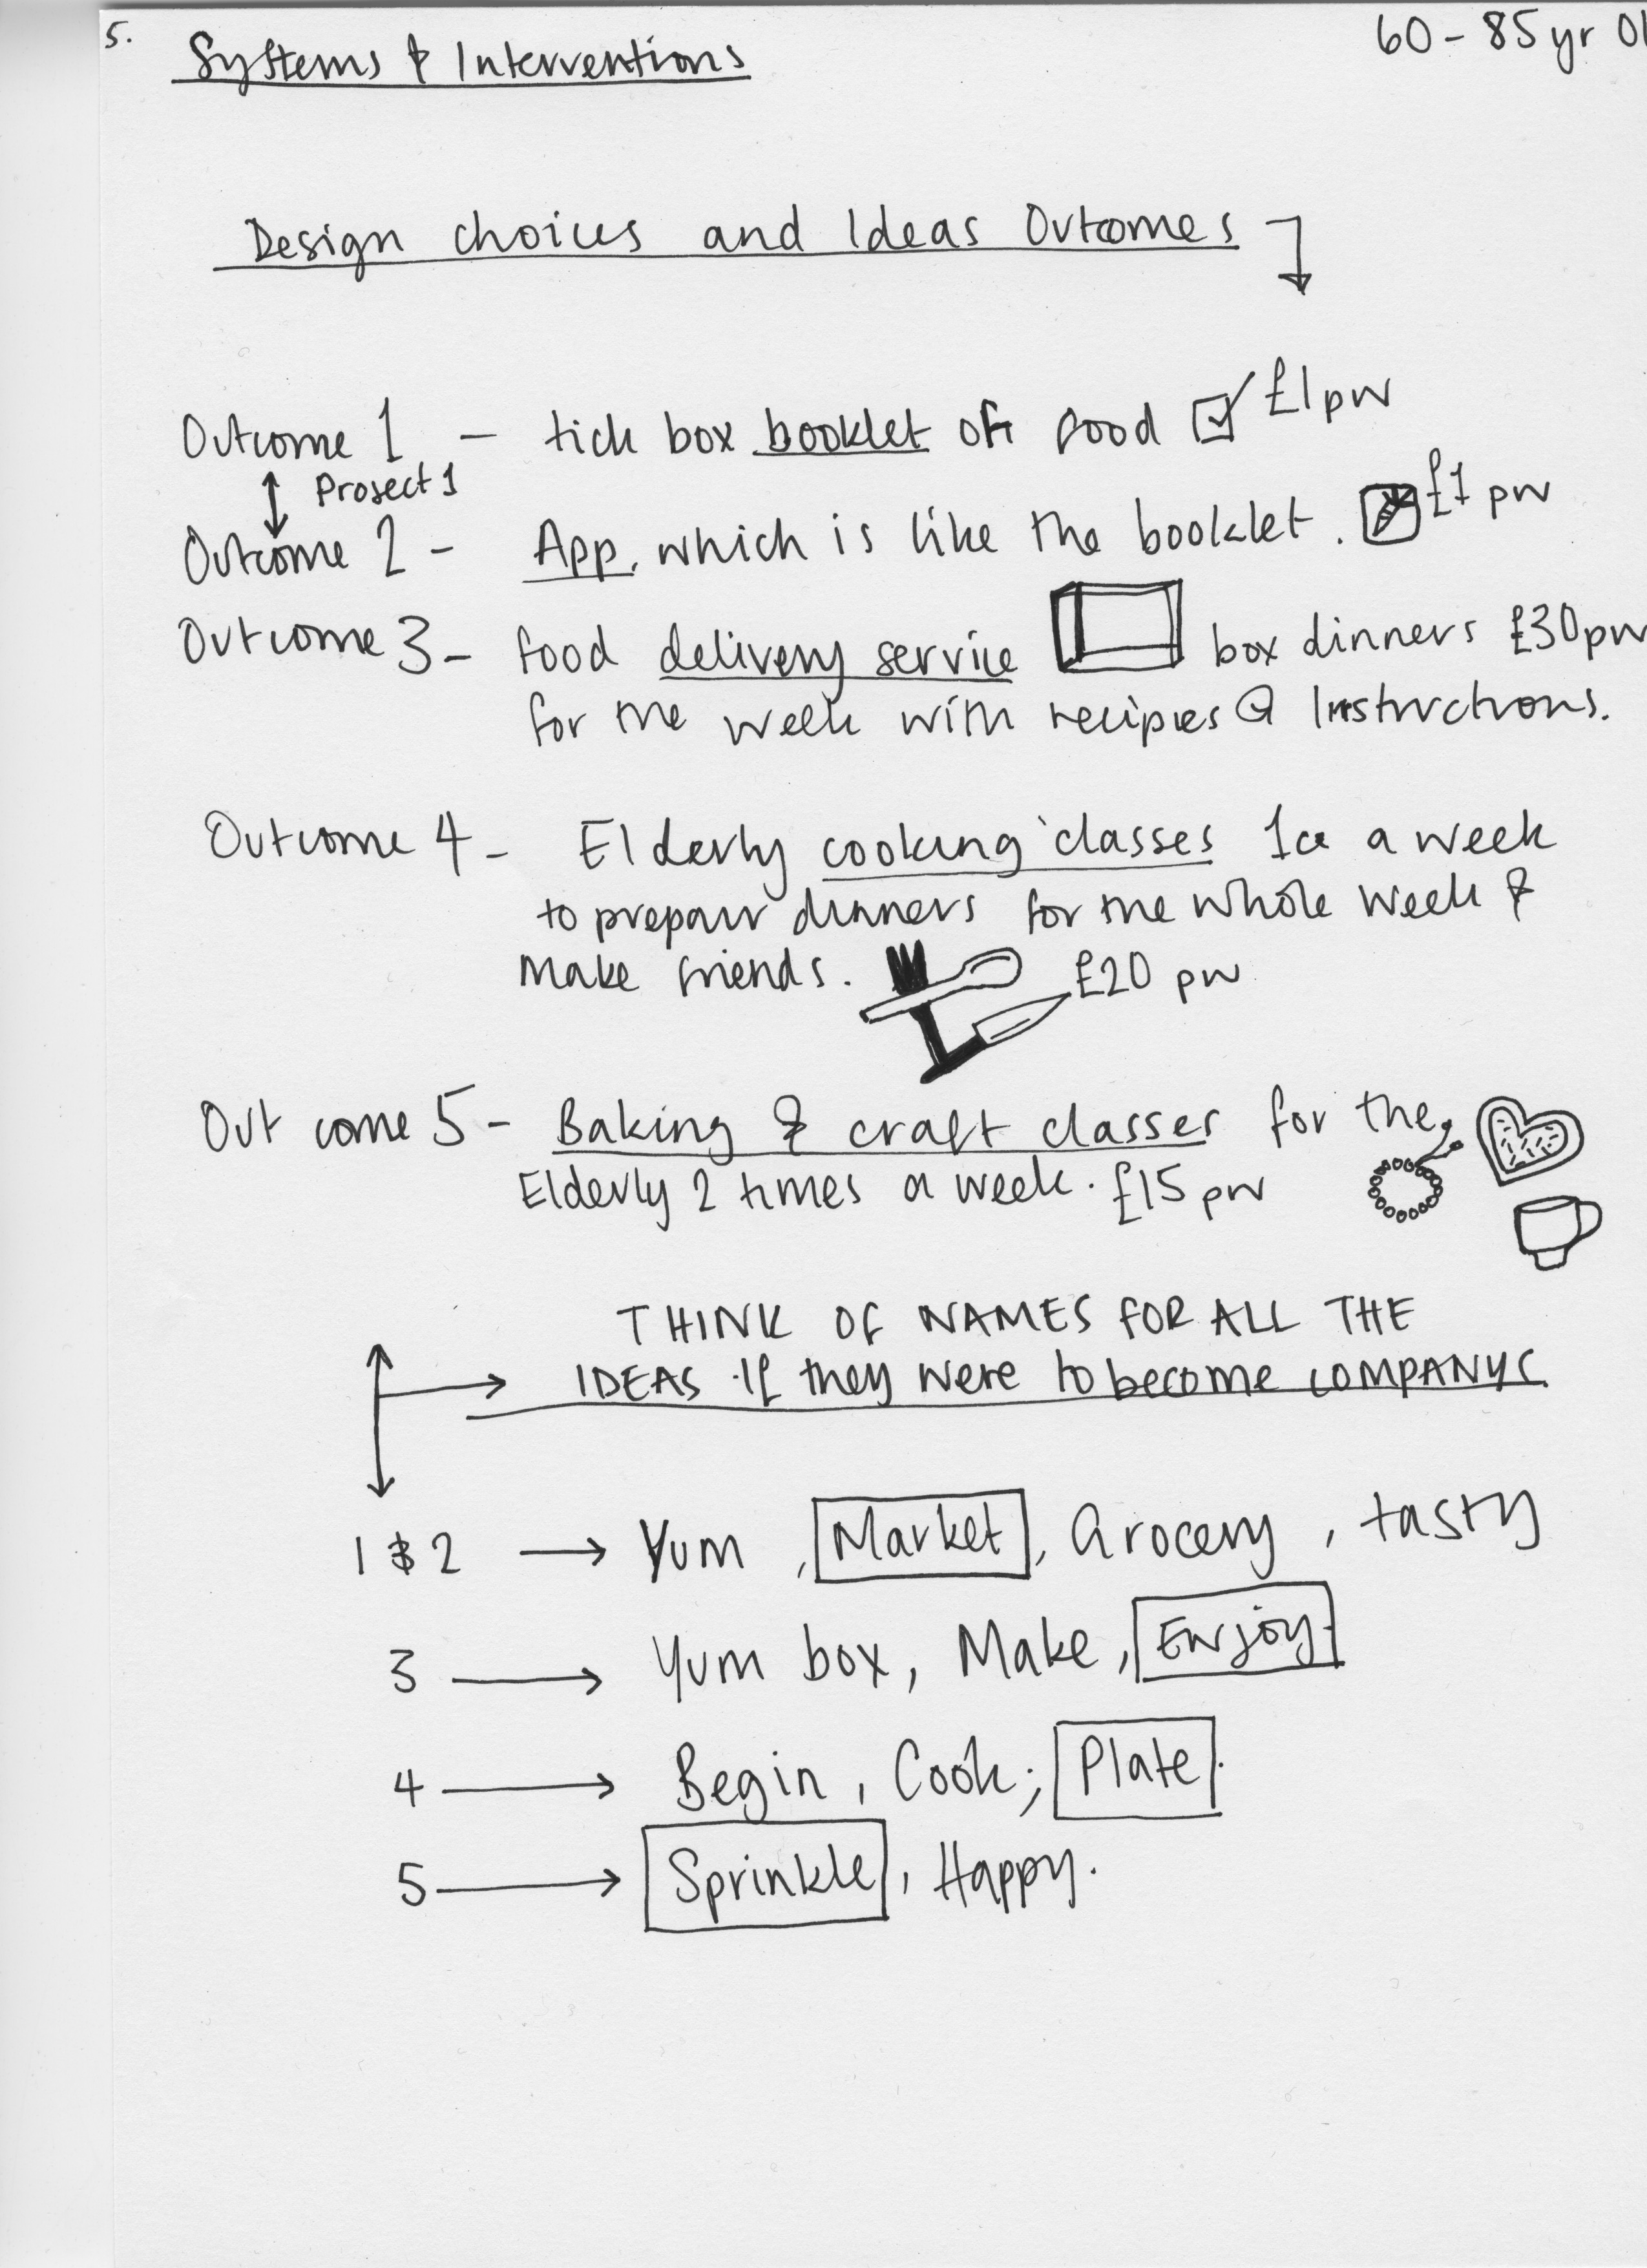 5.
Systems & Interventions
60 - 85 yr Ol
Design choices and Ideas Outcomes
Outcome 1 - tick box booklet of food £1 pw
Project 1
Outcome 2 - App, which is like the booklet. £1 pw
Outcome 3 - food delivery service box dinners £30pw
for the week with recipies & Instructions.
Outcome 4 - Elderly cooking classes 1ce a week
to prepair dinners for the whole week &
Make friends. £20 pw
Out come 5 - Baking & craft classes for the
Elderly 2 times a week. £15 pw
THINK OF NAMES FOR ALL THE
IDEAS If they were to become COMPANYS
1 & 2 → Yum, Market, Grocery, tasty
3 → Yum box, Make, Enjoy.
4 → Begin, Cook, Plate.
5 → Sprinkle, Happy.